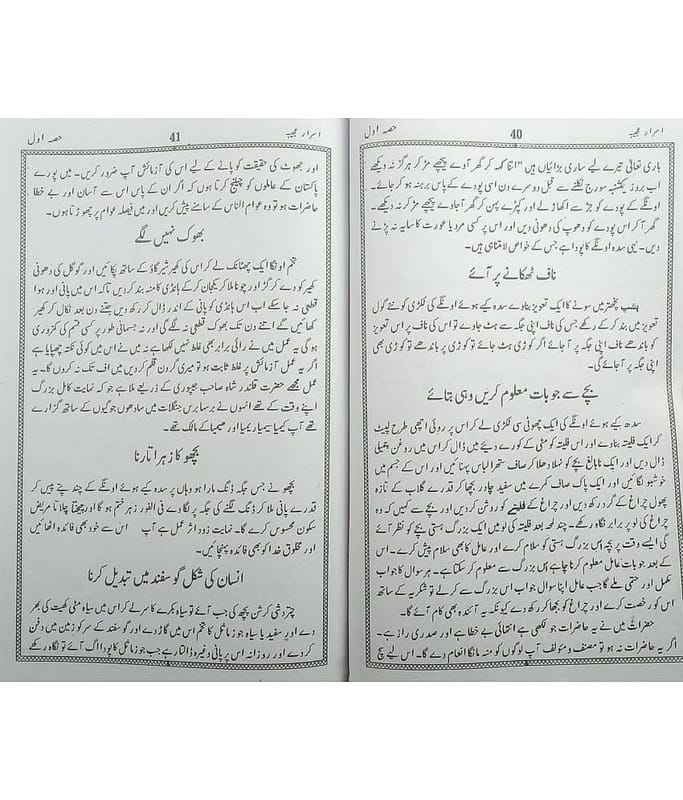 اسرار عجیبہ 40 حصہ اول
باری تعالیٰ تیرے لیے ساری بڑائیاں ہیں "اتنا کہہ کر گھر آوے پیچھے مڑ کر ہرگز نہ دیکھے
اب بروز یکشنبہ سورج نکلنے سے قبل دوسرے دن اسی پودے کے پاس برہنہ ہو کر جائے۔
اونگے کے پودے کو جڑ سے اکھاڑ لے اور کپڑے پہن کر گھر آ جاوے پیچھے مڑ کر نہ دیکھے۔
گھر آ کر اس پودے کو دھوپ کی دھونی دیں اور اس پر کسی مرد یا عورت کا سایہ نہ پڑنے
دیں۔ یہی سدہ اونگے کا پودا ہے جس کے خواص لامتناہی ہیں۔
ناف ٹھکانے پر آئے
پختر میں سونے کا ایک تعویز بناوے سدہ کیے ہوئے اونگے کی لکڑی کو نئے گول
تعویز میں بند کر کے رکھے جس کی ناف اپنی جگہ سے ہٹ جاوے تو اس کی ناف پر اس تعویز
کو باندھے ناف اپنی جگہ پر آ جائے اگر کوڑی ہٹ جائے تو کوڑی پر باندھے تو کوڑی بھی
اپنی جگہ پر آ جائے گی۔
بچے سے جو بات معلوم کریں وہی بتائے
سدھ کیے ہوئے اونگے کی ایک چھوٹی سی لکڑی لے کر اس پر روئی اچھی طرح لپیٹ
کر ایک فلیتہ بناوے اور اس فلیتہ کو مٹی کے کورے دیئے میں ڈال کر اس میں روغن چمیلی
ڈال دیں اور ایک نابالغ بچے کو نہلا دھلا کر صاف ستھرا لباس پہنائیں اور اس کے جسم میں
خوشبو لگائیں اور ایک پاک صاف کمرے میں سفید چادر بچھا کر قدرے گلاب کے تازہ
پھول چراغ کے گرد رکھ دیں اور چراغ کے فلیتے کو روشن کر دیں اور بچے سے کہیں کہ وہ
چراغ کی لو پر برابر نگاہ رکھے۔ چند لمحہ بعد فلیتہ کی لو میں ایک بزرگ ہستی بچے کو نظر آئے
گی ایسے وقت پر بچہ اس بزرگ ہستی کو سلام کرے اور عامل کا بھی سلام پیش کرے۔ اس
کے بعد جو بات عامل معلوم کرنا چاہے اس بزرگ سے معلوم کر سکتا ہے۔ ہر سوال کا جواب
مکمل اور حتمی ملے گا جب عامل اپنا سوال جواب اس بزرگ سے کر لے تو شکریہ کے ساتھ
اس کو رخصت کرے اور چراغ کو بجھا کر رکھ دے کیونکہ یہ آئندہ بھی کام آئے گا۔
حضرات میں نے یہ حاضرات جو لکھی ہے انتہائی بے خطا ہے اور صدری راز ہے۔
اگر یہ حاضرات نہ ہو تو مصنف و مؤلف آپ لوگوں کو منہ مانگا انعام دے گا۔ اس لیے سچ
اسرار عجیبہ 41 حصہ اول
اور جھوٹ کی حقیقت کو پانے کے لیے اس کی آزمائش آپ ضرور کریں۔ میں پورے
پاکستان کے عاملوں کو چیلنج کرتا ہوں کہ اگر ان کے پاس اس سے آسان اور بے خطا
حاضرات ہو تو وہ عوام الناس کے سامنے پیش کریں اور میں فیصلہ عوام پر چھوڑتا ہوں۔
بھوک نہیں لگے
تخم اونگا ایک چھٹانک لے کر اس کی کھیر شیر گاؤ کے ساتھ پکائیں اور گوگل کی دھونی
کھیر کو دے کر گڑ اور چونا ملا کر یکجان کر کے ہانڈی کا منہ بند کر دیں تاکہ اس میں پانی اور ہوا
قطعی نہ جا سکے اب اس ہانڈی کو پانی کے اندر ڈال کر رکھ دیں جتنے دن بعد نکال کر کھیر
کھائیں گے اتنے دن تک بھوک قطعی نہ لگے گی اور نہ جسمانی طور پر کسی قسم کی کمزوری
ہو گی یہ عمل میں نے رائی برابر بھی غلط نہیں لکھا ہے نہ میں نے اس میں کوئی نکتہ چھپایا ہے
اگر یہ عمل آزمائش پر غلط ثابت ہو تو میری گردن قلم کر دیں میں اف تک نہ کروں گا۔ یہ
عمل مجھے حضرت قلندر شاہ صاحب جیپوری کے ذریعے ملا ہے جو کہ نہایت کامل بزرگ
اپنے وقت کے تھے انہوں نے برسا برس جنگلات میں سادھوں جوگیوں کے ساتھ گزارے
تھے آپ کیمیا سیمیا ریمیا اور ھیمیا کے مالک تھے۔
بچھو کا زہر اتارنا
بچھو نے جس جگہ ڈنگ مارا ہو وہاں پر سدہ کیے ہوئے اونگے کے چند پتے پیس کر
قدرے پانی ملا کر ڈنگ لگنے کی جگہ پر لگاوے فی الفور زہر ختم ہو گا اور چیختا چلاتا مریض
سکون محسوس کرے گا۔ نہایت زود اثر عمل ہے آپ اس سے خود بھی فائدہ اٹھائیں
اور مخلوق خدا کو بھی فائدہ پہنچائیں۔
انسان کی شکل گوسفند میں تبدیل کرنا
چتردشی کرشن پچھ کی جب آئے تو سیاہ بکرے کا سر لے کر اس میں سیاہ مٹی کھیت کی بھر
دے اور سفید یا سیاہ جوز ماثل کا تخم اس میں گاڑ دے اور گوسفند کے سر کو زمین میں دفن
کر دے اور روزانہ اس پر پانی وغیرہ ڈالتا رہے جب جوز ماثل کا پودا اگ آئے تو نگاہ رکھے